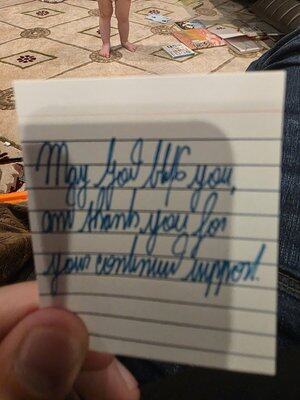 May God bless you,
and thank you for
your continued support.